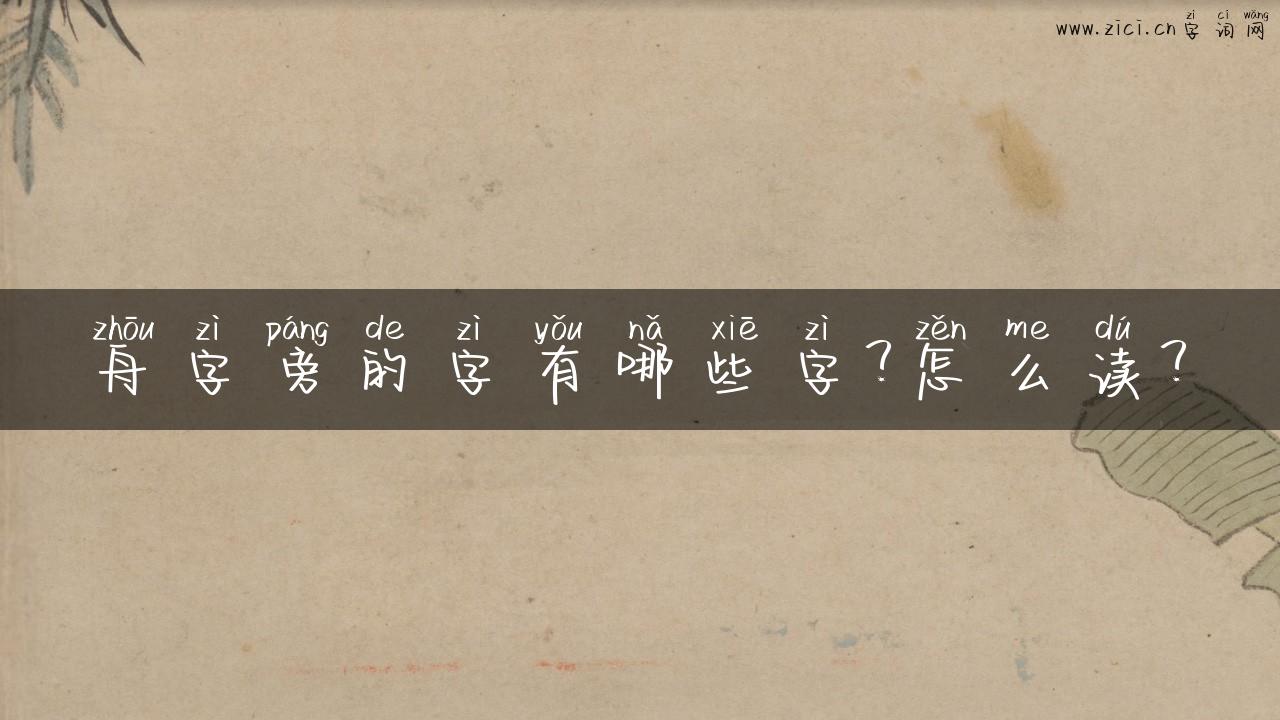 zì cí wǎng
www.zici.cn 字词网
zhōu zì páng de zì yǒu nǎ xiē zì zěn me dú
舟字旁的字有哪些字？怎么读？